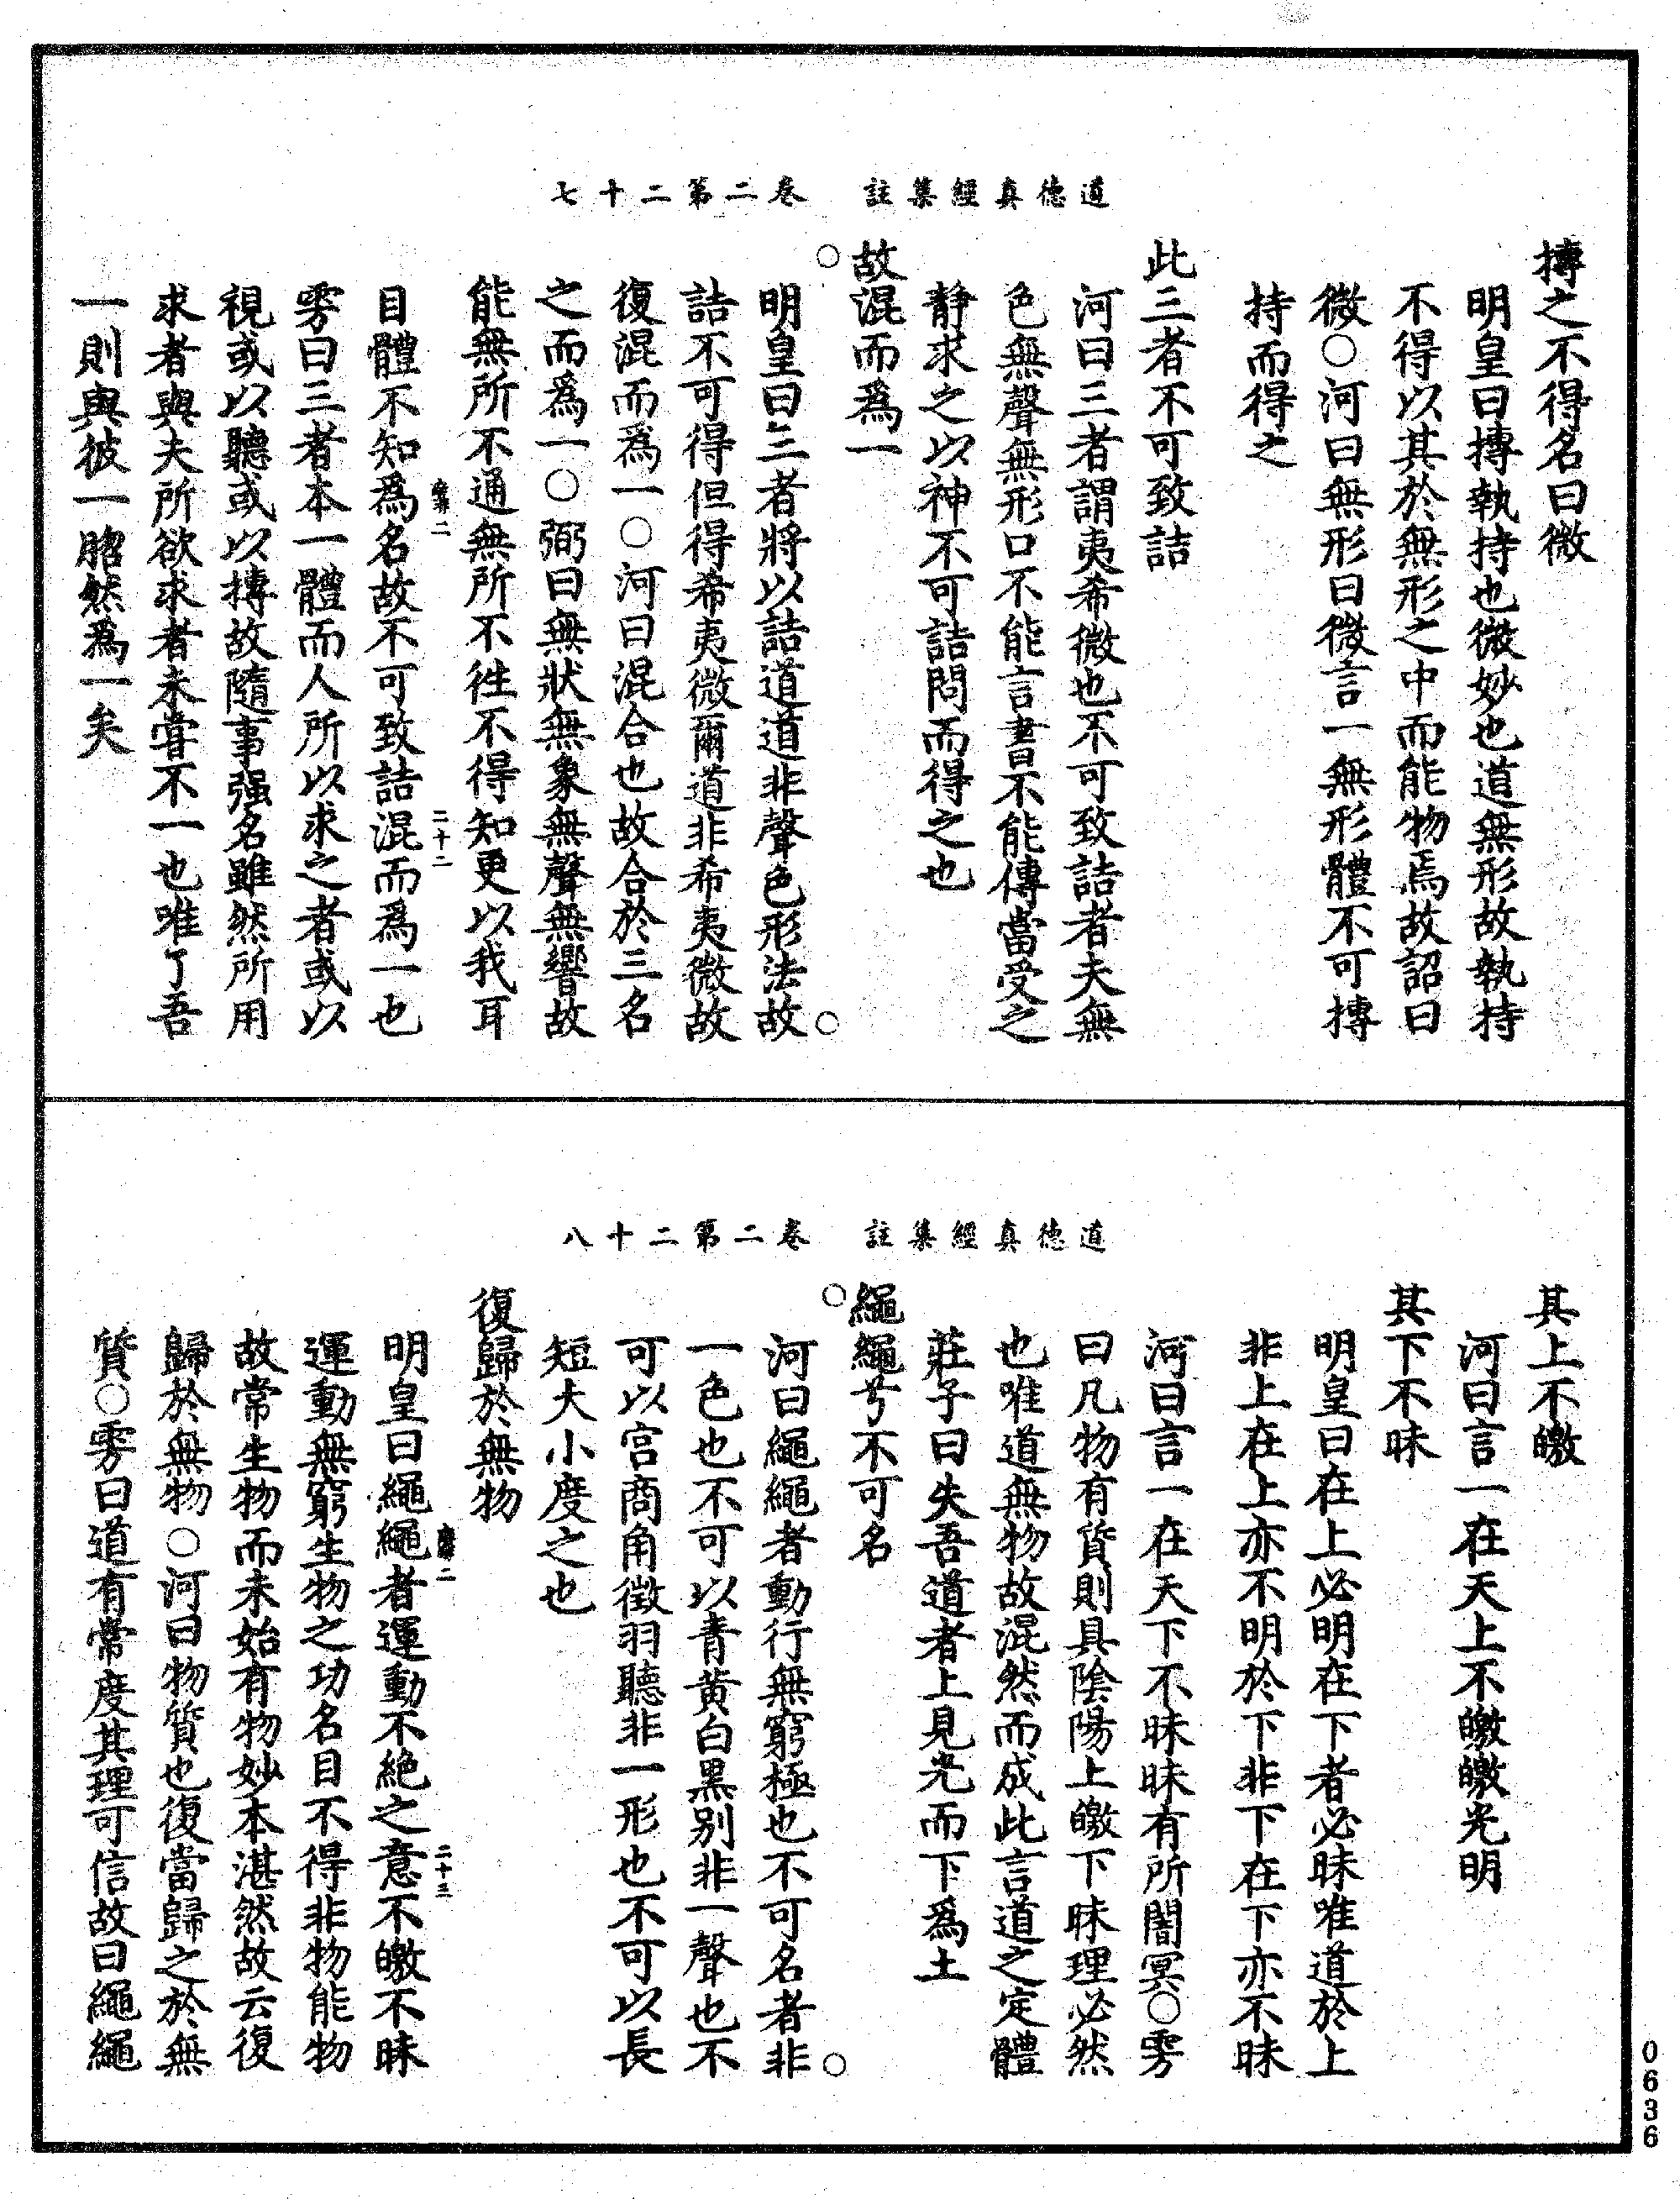 道德真經集註　卷二第二十七
搏之不得名曰微
明皇曰搏執持也微妙也道無形故執持
不得以其於無形之中而能物焉故詔曰
微○河曰無形曰微言一無形體不可搏
持而得之
此三者不可致詰
河曰三者謂夷希微也不可致詰者夫無
色無聲無形口不能言書不能傳當受之
靜求之以神不可詰問而得之也
故混而爲一
明皇曰三者將以詰道道非聲色形法故
詰不可得但得希夷微爾道非希夷微故
復混而爲一○河曰混合也故合於三名
之而爲一○弼曰無狀無象無聲無響故
能無所不通無所不徃不得知更以我耳
二十二
目體不知爲名故不可致詰混而爲一也
雱曰三者本一體而人所以求之者或以
視或以聽或以搏故隨事强名雖然所用
求者與夫所欲求者未甞不一也唯了吾
一則與彼一昭然爲一矣
道德真經集註　卷二第二十八
其上不皦
河曰言一在天上不皦皦光明
其下不昧
明皇曰在上必明在下者必昧唯道於上
非上在上亦不明於下非下在下亦不昧
河曰言一在天下不昧昧有所闇冥○雱
曰凡物有質則具陰陽上皦下昧理必然
也唯道無物故混然而成此言道之定體
莊子曰失吾道者上見光而下爲土
繩繩兮不可名
河曰繩繩者動行無窮極也不可名者非
一色也不可以青黄白黒别非一聲也不
可以宫商角徵羽聽非一形也不可以長
短大小度之也
復歸於無物
二十三
明皇曰繩繩者運動不絶之意不皦不昧
運動無窮生物之功名目不得非物能物
故常生物而未始有物妙本湛然故云復
歸於無物○河曰物質也復當歸之於無
質○雱曰道有常度其理可信故曰繩繩
0636